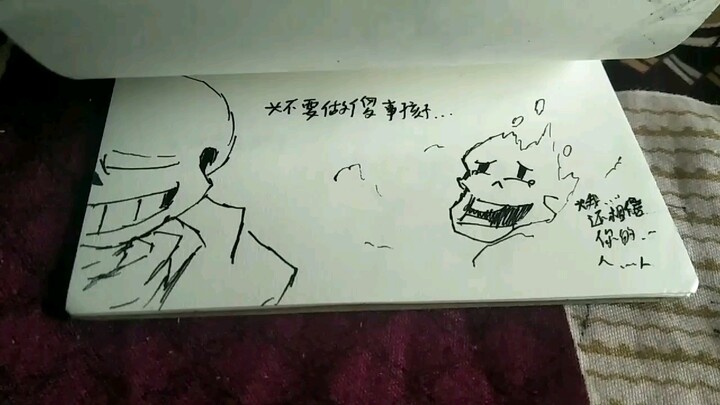 *不要做傻事孩子...
*我...
还相信
你的..
人....人